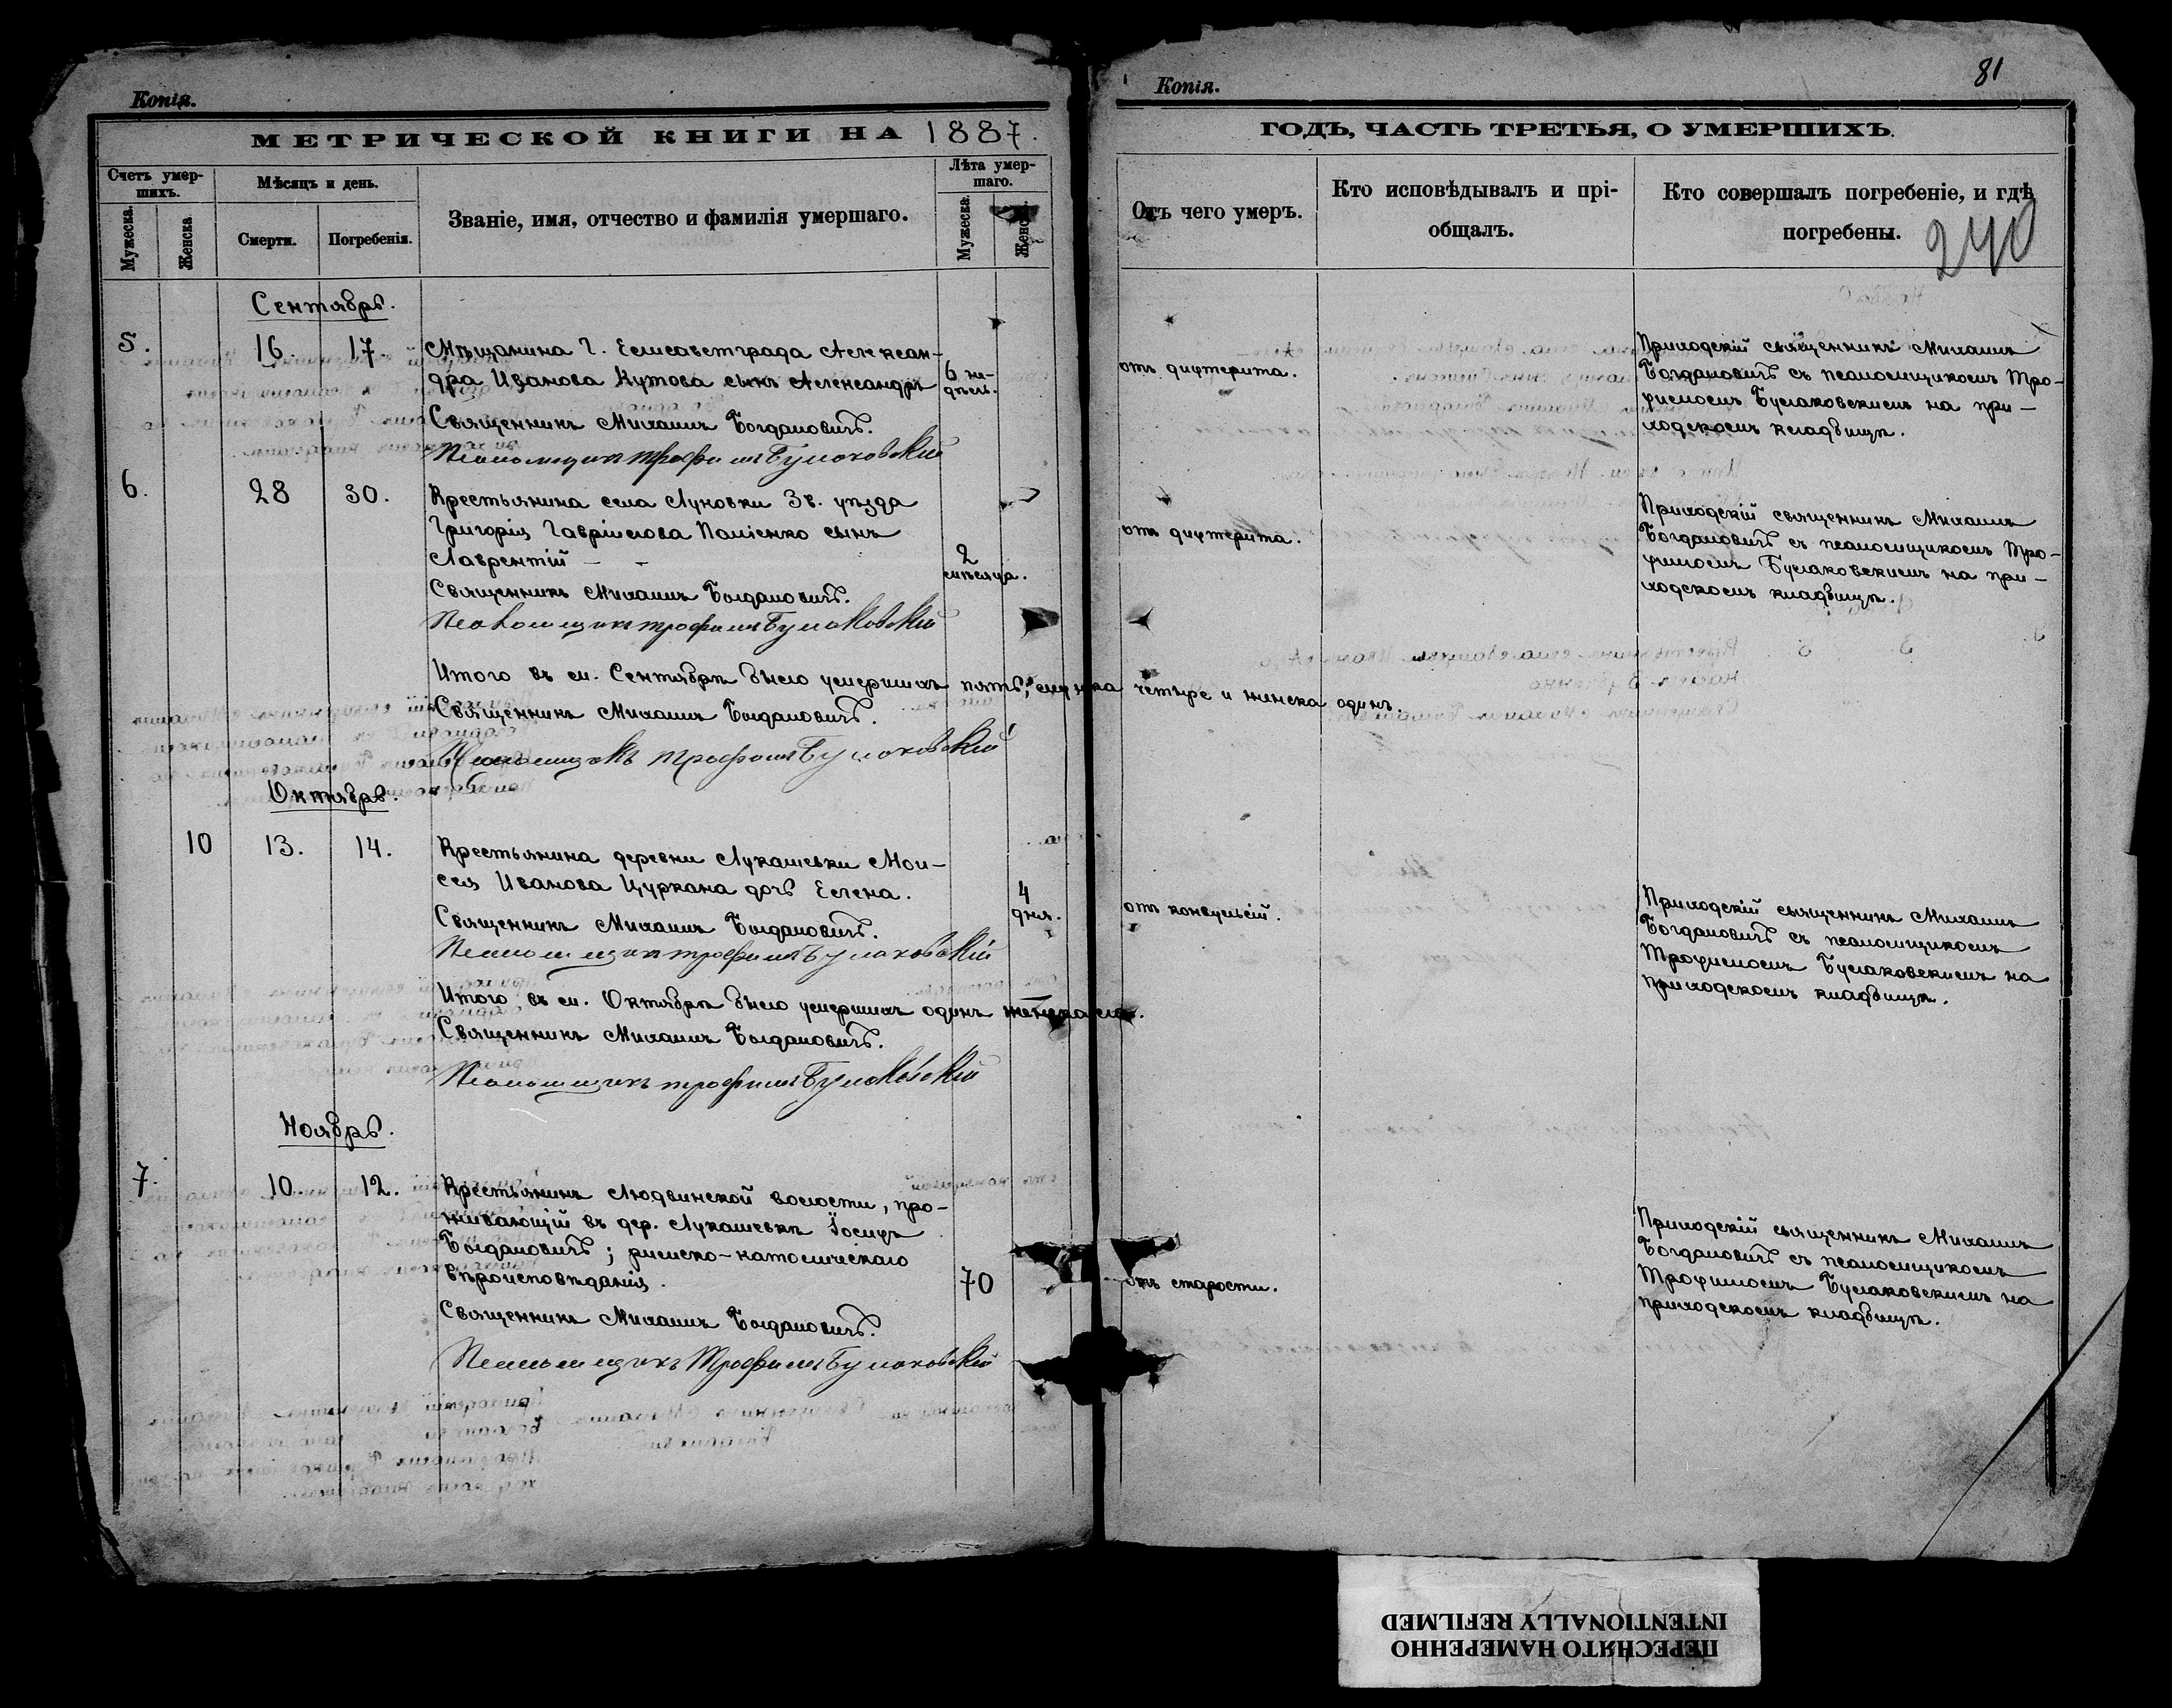 Копія.
МЕТРИЧЕСКОЙ КНИГИ НА 1887.
Счетъ умер-
шихъ.
Мѣсяцъ и день.
Званіе, имя, отчество и фамилія умершаго.
Лѣта умер-
шаго.
Мужеска.
Женска
Смерти.
Погребенія.
Мужеска.
Женск.
Сентябрь.
5.
16.
17.
Мѣщанина г. Елисаветграда Алексан-
дра Иванова Кутова сынъ Александръ
6 не-
дѣль.
Священникъ Михаилъ Богдановичъ.
Псаломщикъ Трофимъ Булаковскій
6.
28
30.
Крестьянина села Луковки Зв. уѣзда
Григорія Гаврiилова Паліенко сынъ
Лаврентій – -
2
мѣсяца.
Священникъ Михаилъ Богдановичъ.
Псаломщикъ Трофимъ Булаковскій
Итого въ м. Сентябрѣ было умершихъ пять; мужска четыре и женска одинъ.
Священникъ Михаилъ Богдановичъ.
Псаломщикъ Трофимъ Булаковскій
Октябрь.
10
13.
14.
Крестьянина деревни Лукашевки Мои-
сея Иванова Цуркана дочь Елена.
4
дня.
Священникъ Михаилъ Богдановичъ.
Псаломщикъ Трофимъ Булаковскій
Итого въ м. Октябрѣ было умершихъ одинъ женска
Священникъ Михаилъ Богдановичъ.
Псаломщикъ Трофимъ Булаковскій
Ноябрь.
7.
10.
12.
Крестьянинъ Людвинской волости, про-
живающій въ дер. Лукашевкѣ Іосифъ
Богдановичъ; римско-католическаго
вѣроисповѣданія.
70
Священникъ Михаилъ Богдановичъ.
Псаломщикъ Трофимъ Булаковскій
Копія.
81
ГОДЪ, ЧАСТЬ ТРЕТЬЯ, О УМЕРШИХЪ.
Отъ чего умеръ.
Кто исповѣдывалъ и прі-
общалъ.
Кто совершалъ погребеніе, и гдѣ
погребены.
240
отъ дифтерита.
Приходскій священникъ Михаилъ
Богдановичъ съ псаломщикомъ Тро-
фимомъ Булаковскимъ на при-
ходскомъ кладбищѣ.
отъ дифтерита.
Приходскій священникъ Михаилъ
Богдановичъ съ псаломщикомъ Тро-
фимомъ Булаковскимъ на при-
ходскомъ кладбищѣ.
отъ конвульсій.
Приходскій священникъ Михаилъ
Богдановичъ съ псаломщикомъ
Трофимомъ Булаковскимъ на
приходскомъ кладбищѣ.
отъ старости.
Приходскій священникъ Михаилъ
Богдановичъ съ псаломщикомъ
Трофимомъ Булаковскимъ на
приходскомъ кладбищѣ.
ПЕРЕСНЯТО НАМЕРЕННО
INTENTIONALLY REFILMED